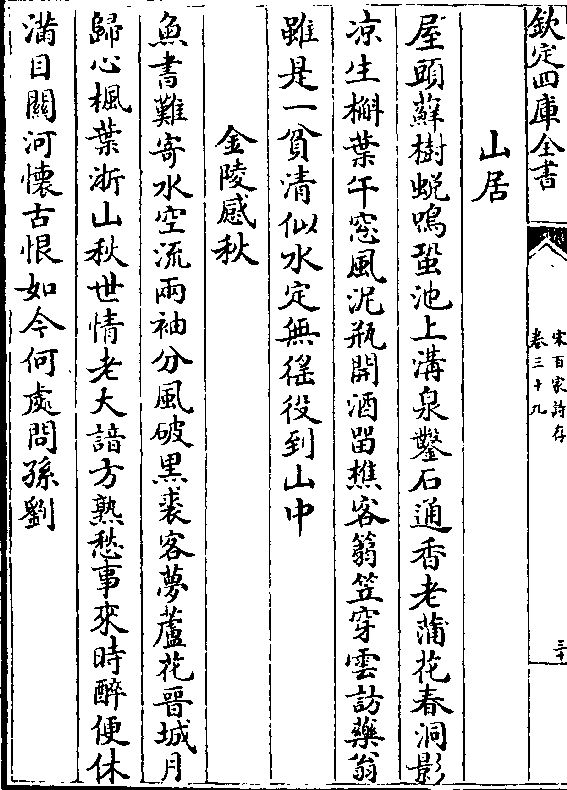 欽定四庫全書
宋百家詩存
卷三十九
三十
山居
屋頭蘚樹蜕鳴蛩池上溝泉鑿石通香老蒲花春洞影
凉生槲葉午窓風泥瓶開酒畱樵客篛笠穿雲訪藥翁
雖是一貧清似水定無徭役到山中
金陵感秋
魚書難寄水空流兩袖分風破黒裘客夢蘆花晉城月
歸心楓葉浙山秋世情老大諳方熟愁事來時醉便休
滿目關河懷古恨如今何處問孫劉